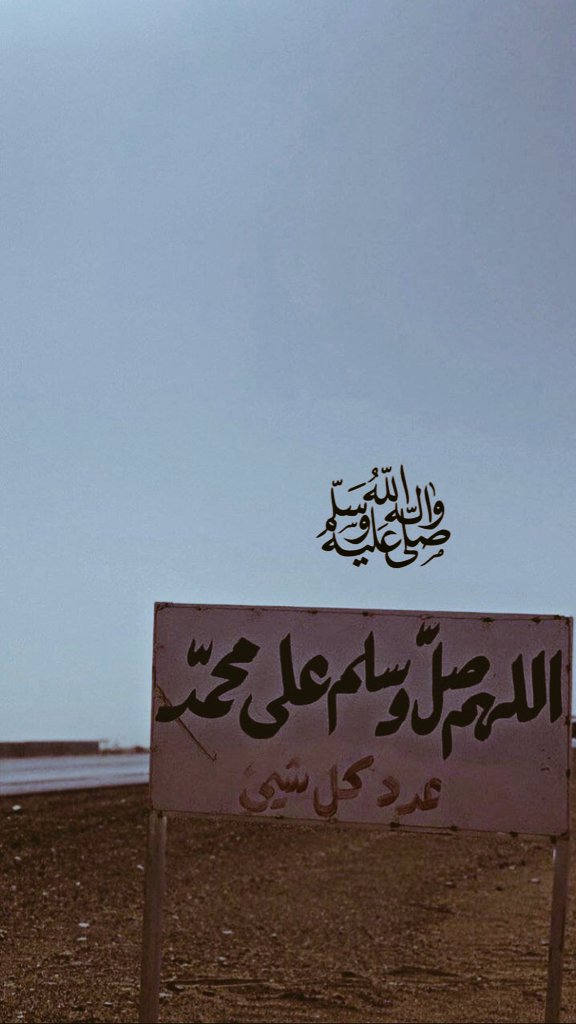 صلى الله عليه وآله وسلم
اللهم صلّ وسلم على محمدّ
عدد كل شيئ